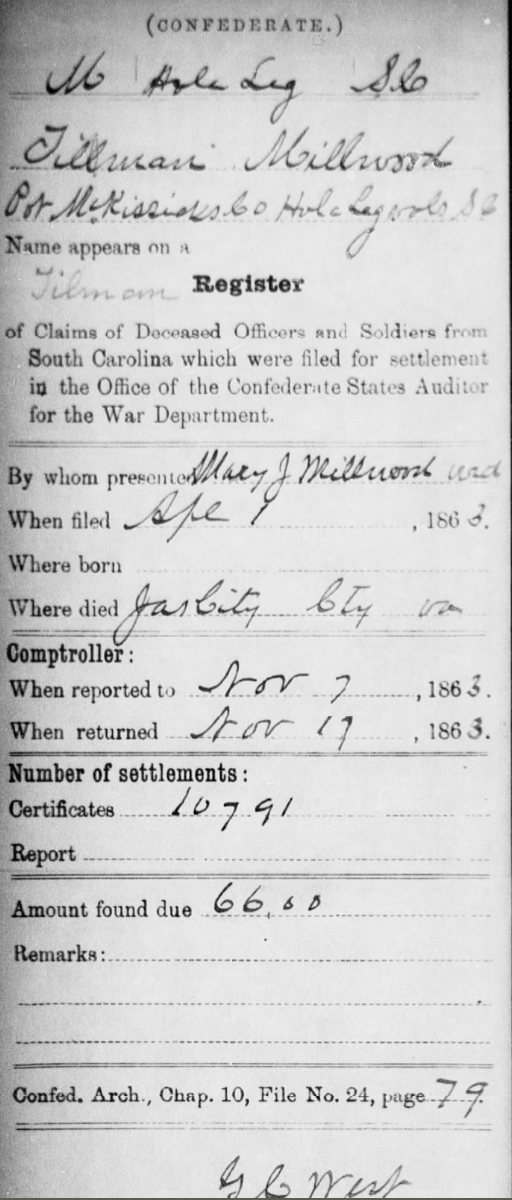 (CONFEDERATE.)
M Holc Leg S C
Tillman Millwood
Pvt McKissicks Co Holc Leg vols S C
Name appears on a
Tilmam Register
of Claims of Deceased Officers and Soldiers from
South Carolina which were filed for settlement
in the Office of the Confederate States Auditor
for the War Department.
By whom presented Mary J Millwood wid
When filed Apl 1, 1863.
Where born
Where died Jas City Cty va
Comptroller:
When reported to Nov 7, 1863.
When returned Nov 17, 1863.
Number of settlements:
Certificates 10791
Report
Amount found due 66.00
Remarks:
Confed. Arch., Chap. 10, File No. 24, page 79.
G C West